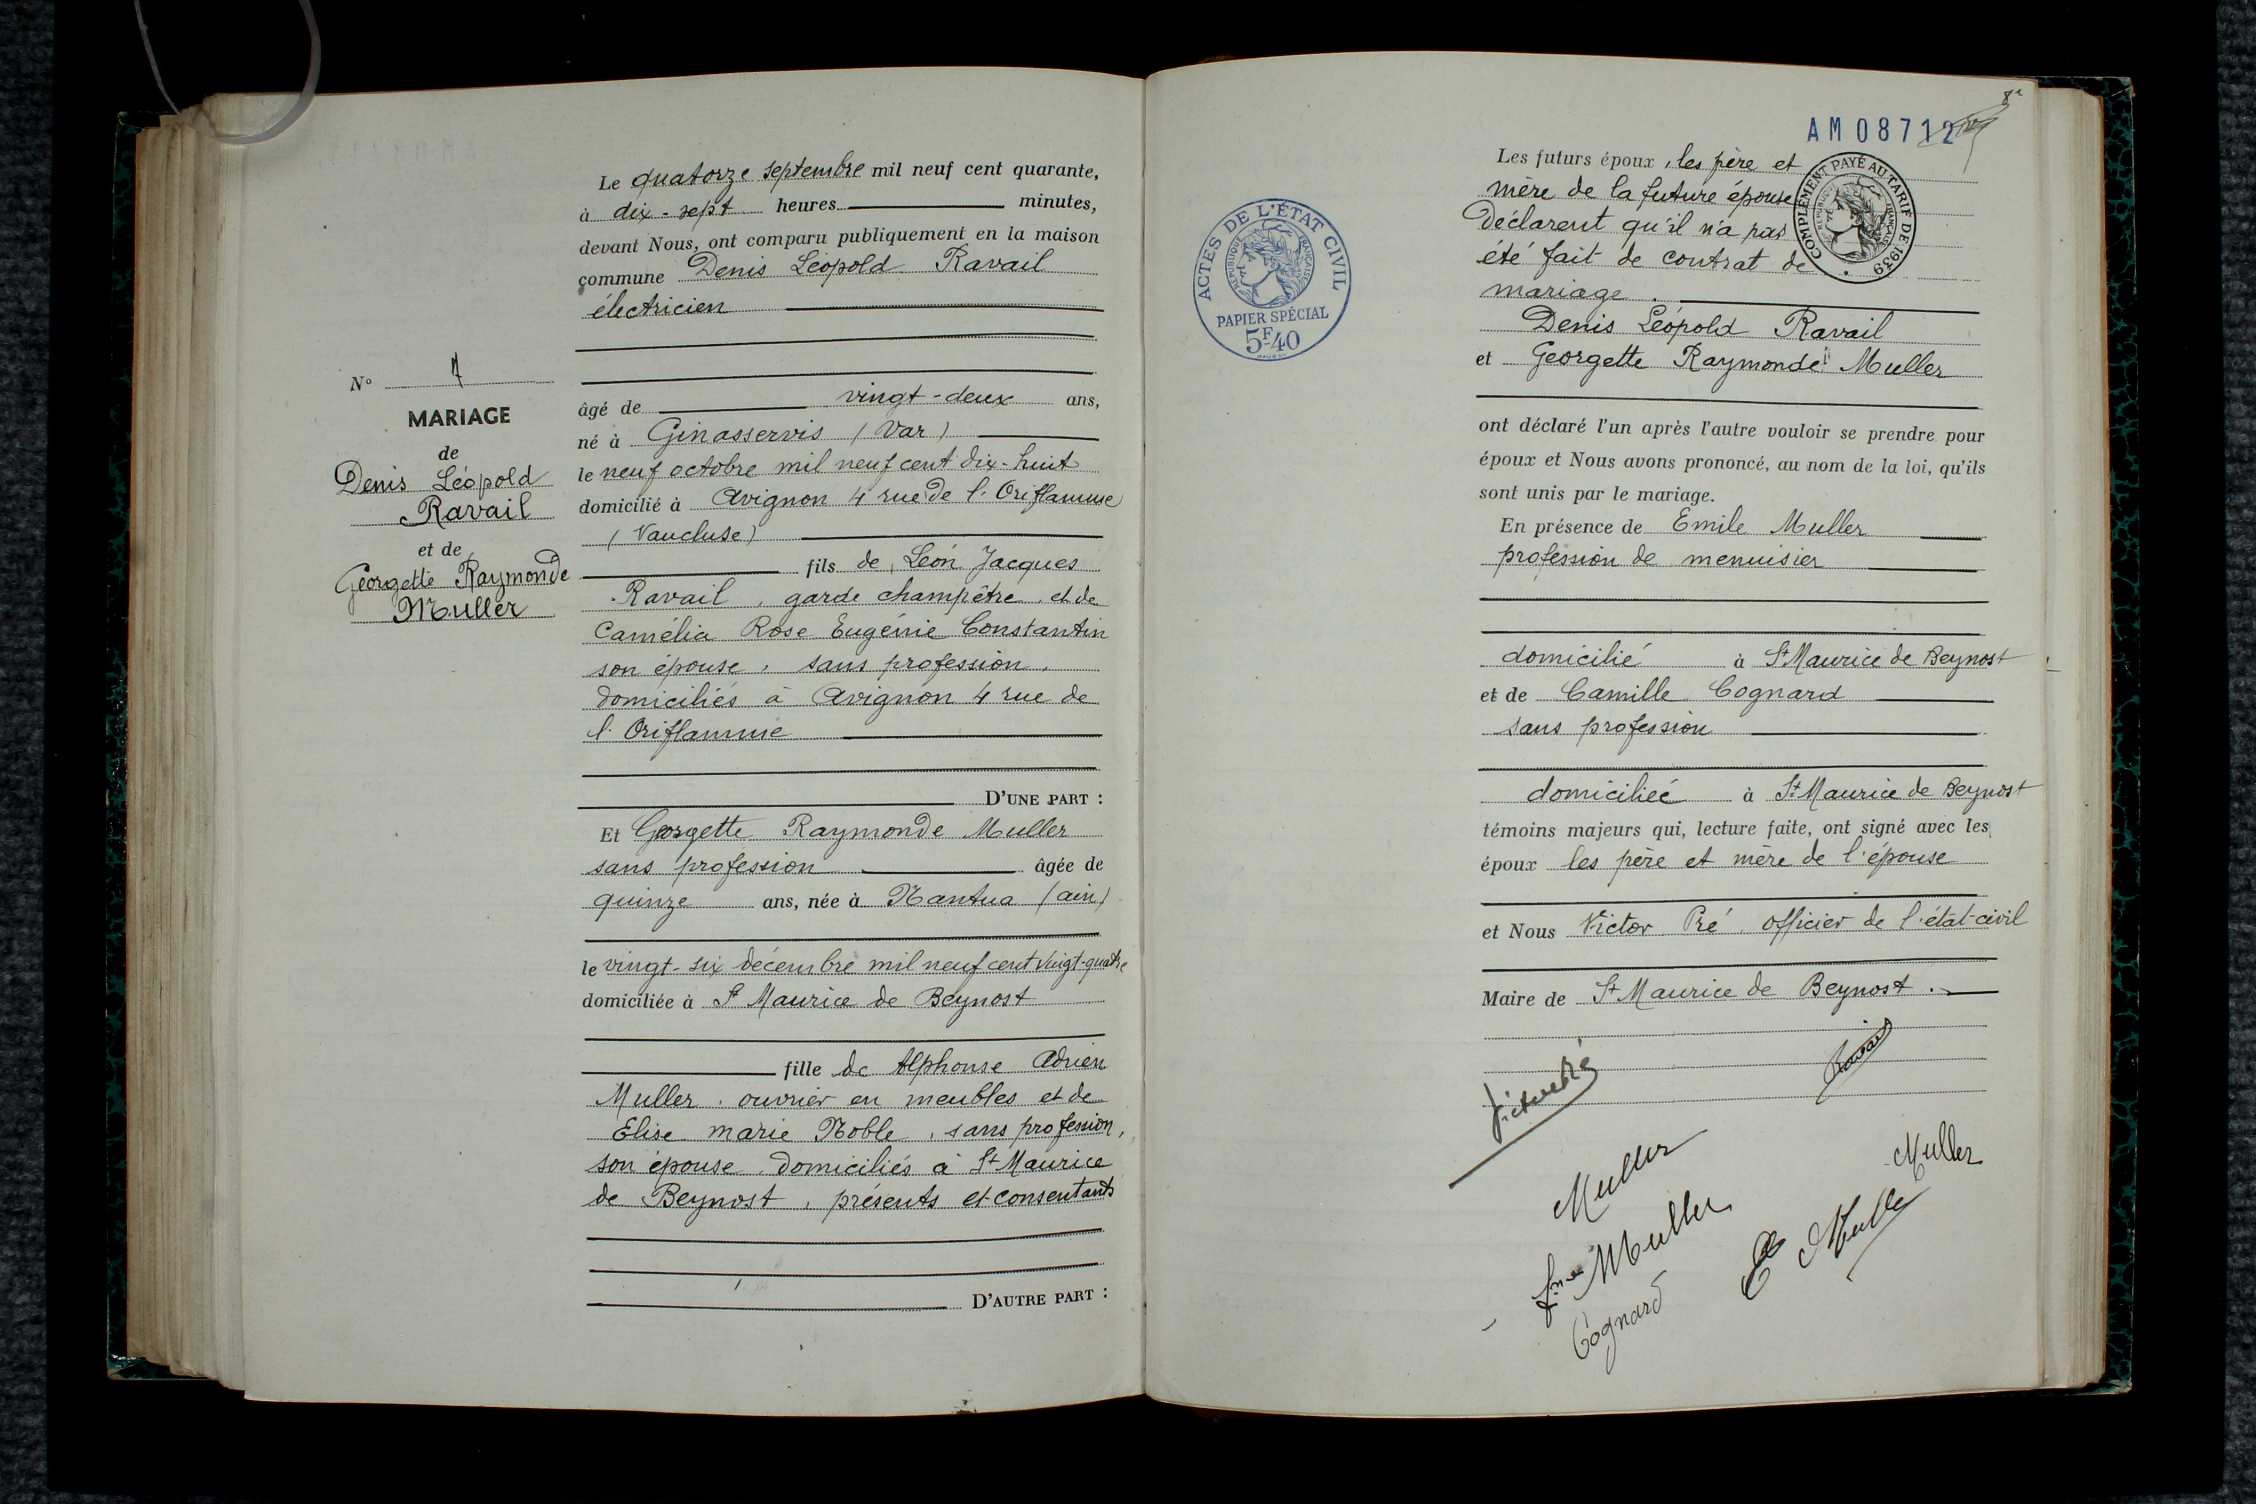 N° 7
MARIAGE
de
Denis Léopold
Ravail
et de
Georgette Raymonde
Muller
Le quatorze septembre mil neuf cent quarante,
à dix-sept heures minutes,
devant Nous, ont comparu publiquement en la maison
commune Denis Léopold Ravail
électricien
âgé de vingt-deux ans,
né à Ginasservis (Var)
le neuf octobre mil neuf cent dix-huit
domicilié à Avignon 4 rue de l'Oriflamme
(Vaucluse)
fils de Léon Jacques
Ravail, garde champêtre et de
Camélia Rose Eugénie Constantin
son épouse, sans profession,
domiciliés à Avignon 4 rue de
l'Oriflamme
D'UNE PART :
Et Georgette Raymonde Muller
sans profession âgée de
quinze ans, née à Nantua (ain)
le vingt-six décembre mil neuf cent vingt-quatre
domiciliée à St Maurice de Beynost
fille de Alphonse Adrien
Muller, ouvrier en meubles et de
Elise marie Noble, sans profession,
son épouse domiciliés à St Maurice
de Beynost, présents et consentants
D'AUTRE PART :
ACTES DE L'ÉTAT CIVIL
RÉPUBLIQUE FRANÇAISE
PAPIER SPÉCIAL
5F40
AM 08712
COMPLÉMENT PAYÉ AU TARIF DE 1939
RÉPUBLIQUE FRANÇAISE
Les futurs époux, les père et
mère de la future épouse
déclarent qu'il n'a pas
été fait de contrat de
mariage.
Denis Léopold Ravail
et Georgette Raymonde Muller
ont déclaré l'un après l'autre vouloir se prendre pour
époux et Nous avons prononcé, au nom de la loi, qu'ils
sont unis par le mariage.
En présence de Emile Muller
profession de menuisier
domicilié à St Maurice de Beynost
et de Camille Cognard
sans profession
domiciliée à St Maurice de Beynost
témoins majeurs qui, lecture faite, ont signé avec les
époux les père et mère de l'épouse
et Nous Victor Pré, officier de l'état-civil
Maire de St Maurice de Beynost.
Victor Pré
Ravail
Muller
Muller
fme Muller
Muller
Cognard